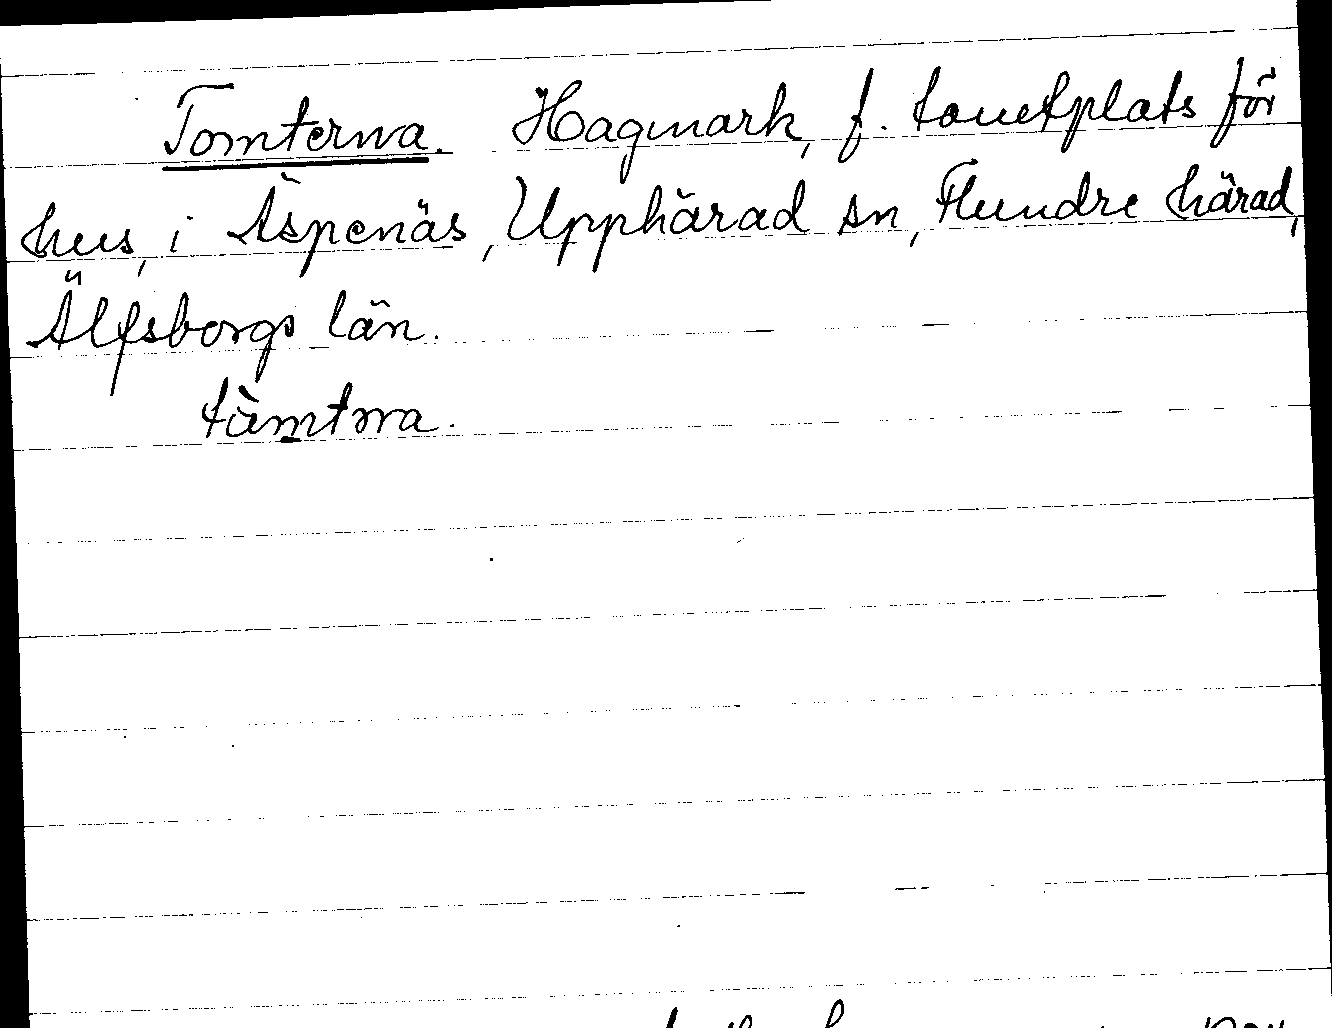 Tomterna. Hagmark, f. tomtplats för
hus, i Åspenäs, Upphärad sn, Flundre härad,
Älfsborgs län.
tàmtna.